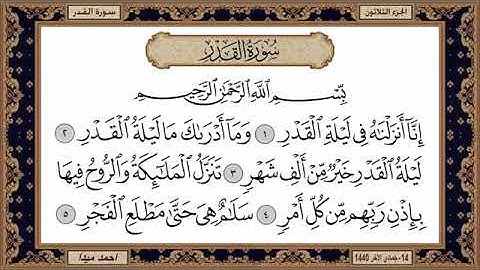 سورة القدر
الجزء الثلاثون
سُورَةُ القَدْرِ
بِسْمِ اللَّهِ الرَّحْمَٰنِ الرَّحِيمِ
إِنَّا أَنزَلْنَاهُ فِي لَيْلَةِ الْقَدْرِ ١ وَمَا أَدْرَاكَ مَا لَيْلَةُ الْقَدْرِ ٢
لَيْلَةُ الْقَدْرِ خَيْرٌ مِّنْ أَلْفِ شَهْرٍ ٣ تَنَزَّلُ الْمَلَائِكَةُ وَالرُّوحُ فِيهَا
بِإِذْنِ رَبِّهِم مِّن كُلِّ أَمْرٍ ٤ سَلَامٌ هِيَ حَتَّىٰ مَطْلَعِ الْفَجْرِ ٥
14-جمادي الآخر 1440